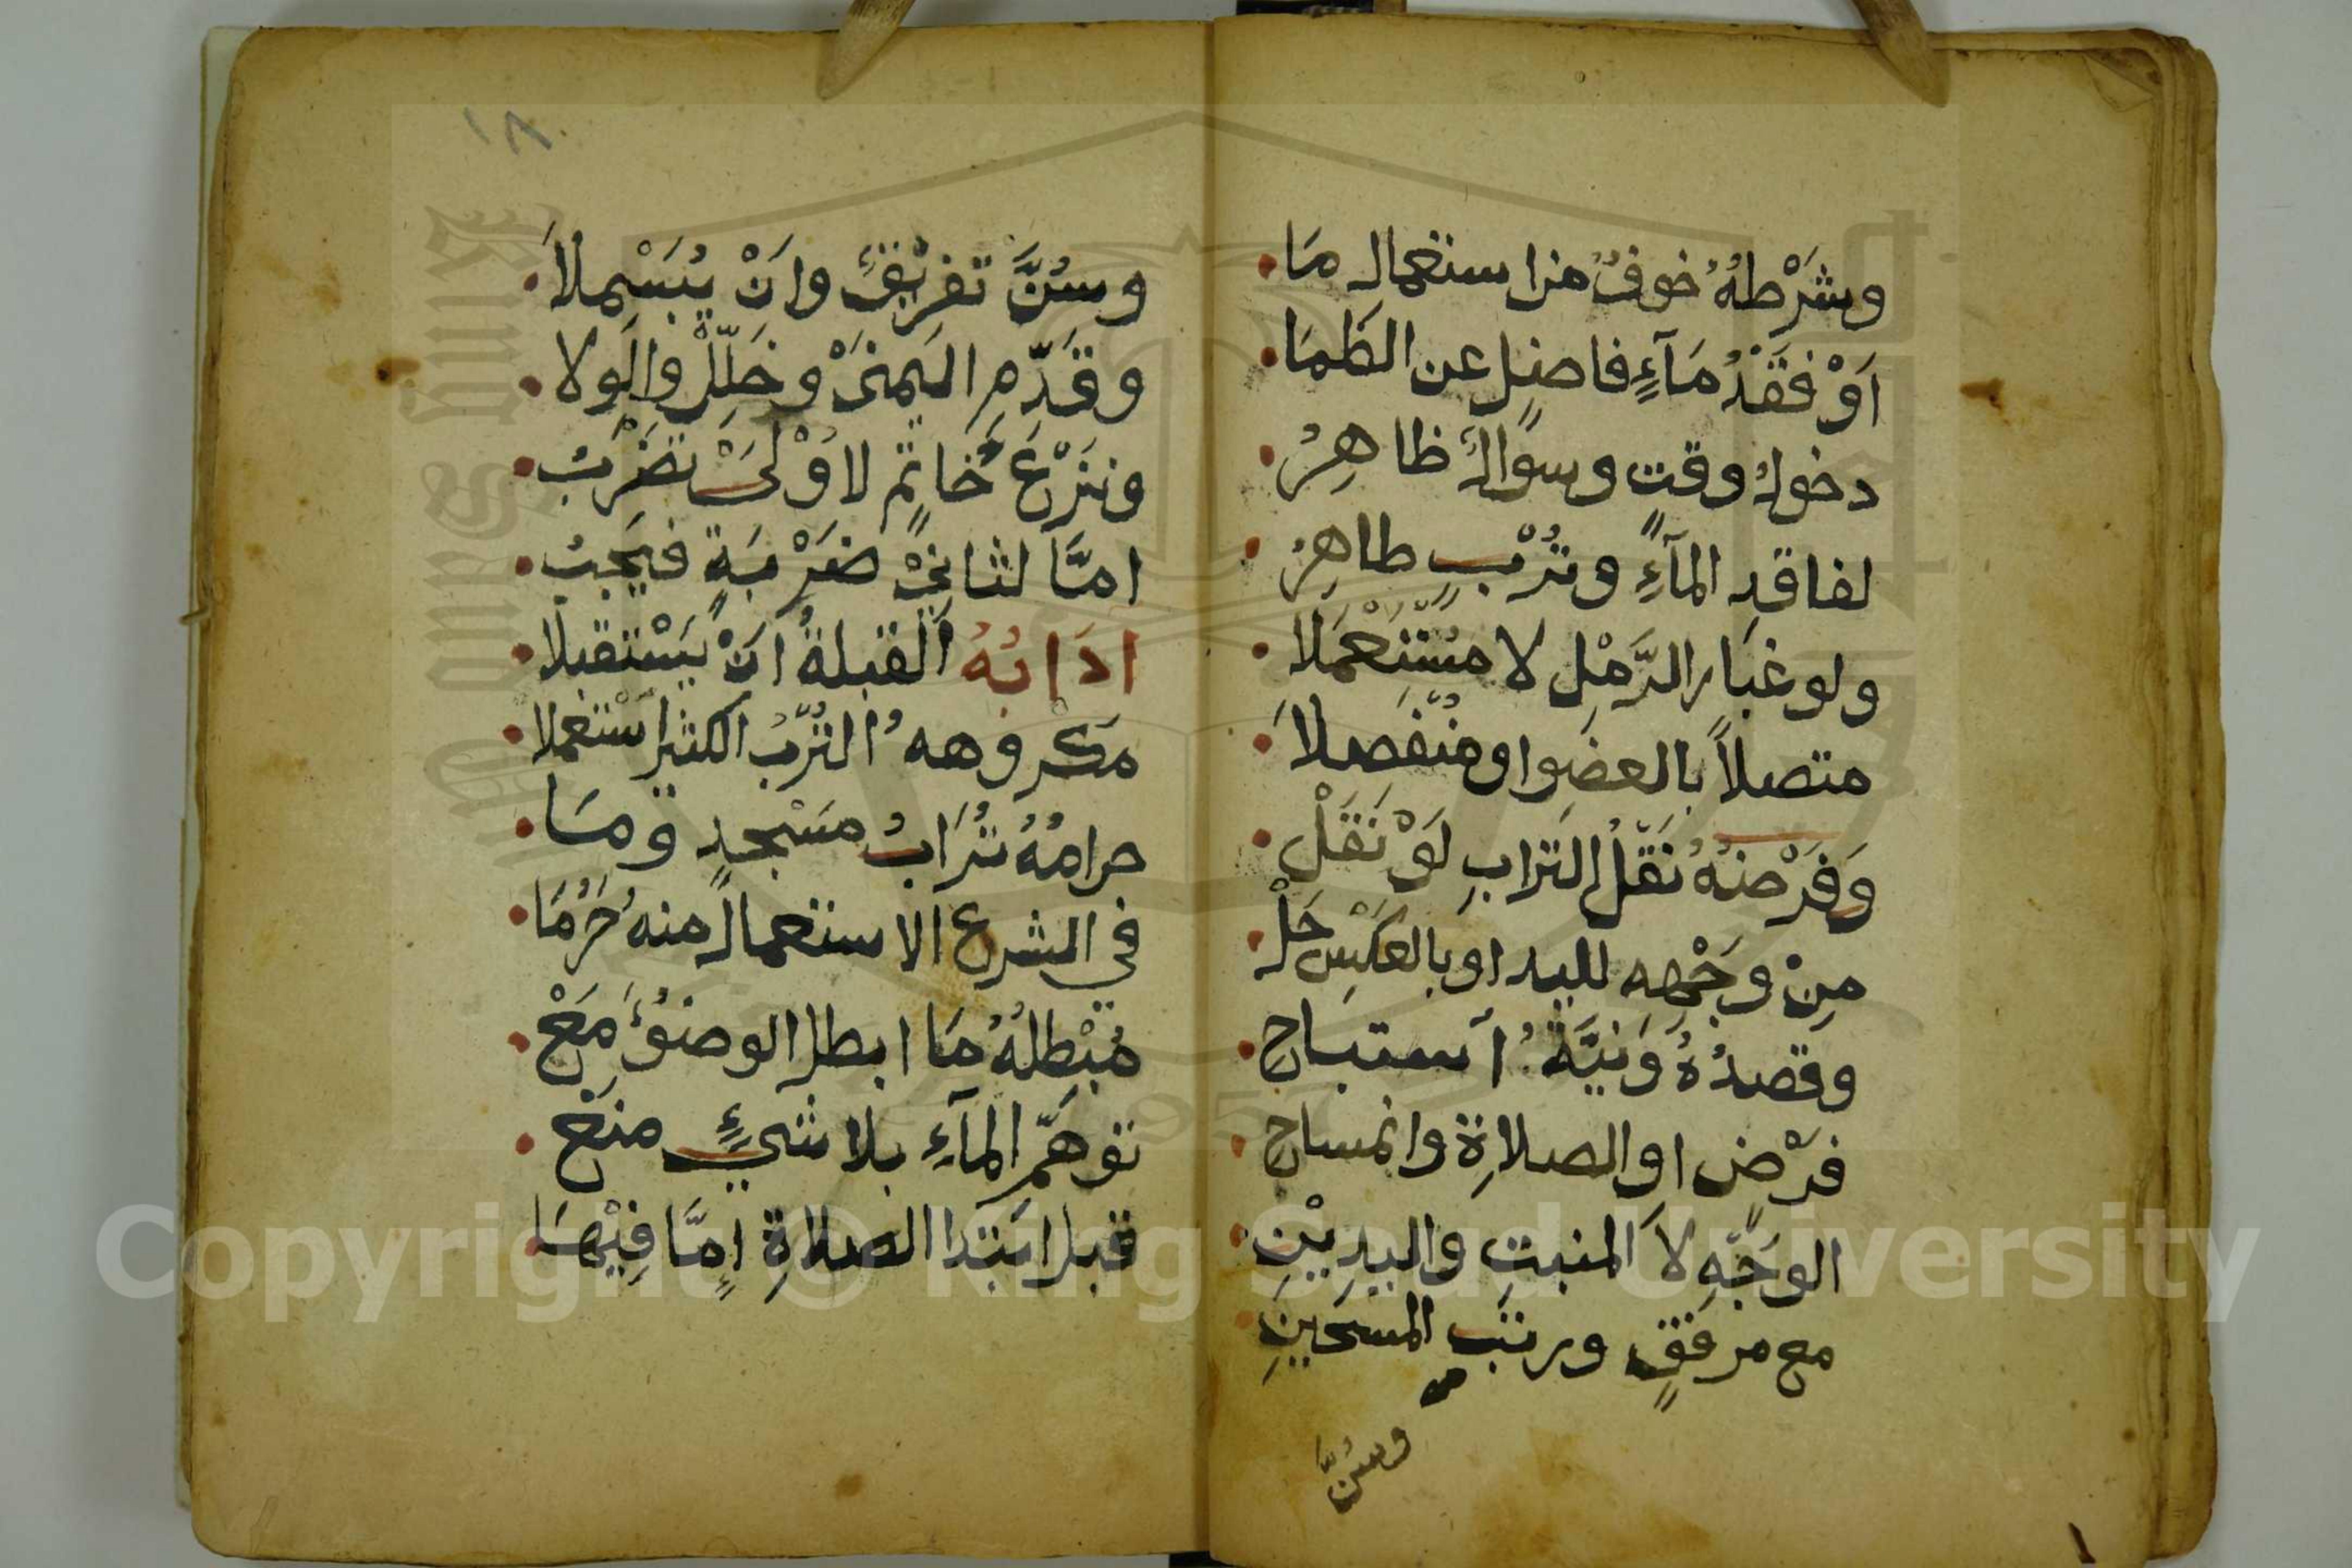 وشَرْطهُ خوفٌ من استعمال مَا
اَوْ فَقَدْ مَآءٍ فاضلٍ عن الظَمَا
دخولُ وقتٍ وسوالٌ ظاهِرُ
لفاقدِ المآءِ وتُرْبٍ طاهِرُ
ولو غبَار الرَّمْلِ لا مسْتَعْمَلا
متصلاً بالعضو او منْفصلاَ
وَفَرْضهُ نَقْلُ التراب لَوْ نَقَلْ
مِنْ وَجْهِه لليد او بالعكسِ حَلْ
وقصدُهُ وَنيَّةُ استباح
فرْضٍ او الصلاةِ وانمساح
الوَجْهِ لا المنبتِ واليدِيْنِ
مع مرفقٍ ورتب المسحَينِ
وسُنَّ
١٨
وسُنَّ تفرِيْقٌ وانْ يُبَسْمِلاَ
وقَدِّمِ اليمنَىْ وخَلِّلْ والوِلا
ونَزْعَ خَاتِمٍ لاوْلَىْ تضْرَبُ
امَّا لثانيْ ضَرْبَةٍ فيَجبُ
ادابُهُ القبلةُ انْ يَسْتقبلا
مكروههُ التُّرْبُ الكثير اسْتعملا
حرامُهُ تُرَابُ مسْجدٍ ومَا
في الشرع الاستعمالُ منهُ حَرُمَا
مُبْطلهُ مَا ابطل الوضوُءَ مَعْ
توهّمِ المآءِ بلا شيءٍ منَعْ
قبل ابتدا الصلاةِ اِمَّا فِيْهَا
Copyright © King Saud University
King Saud University
1957